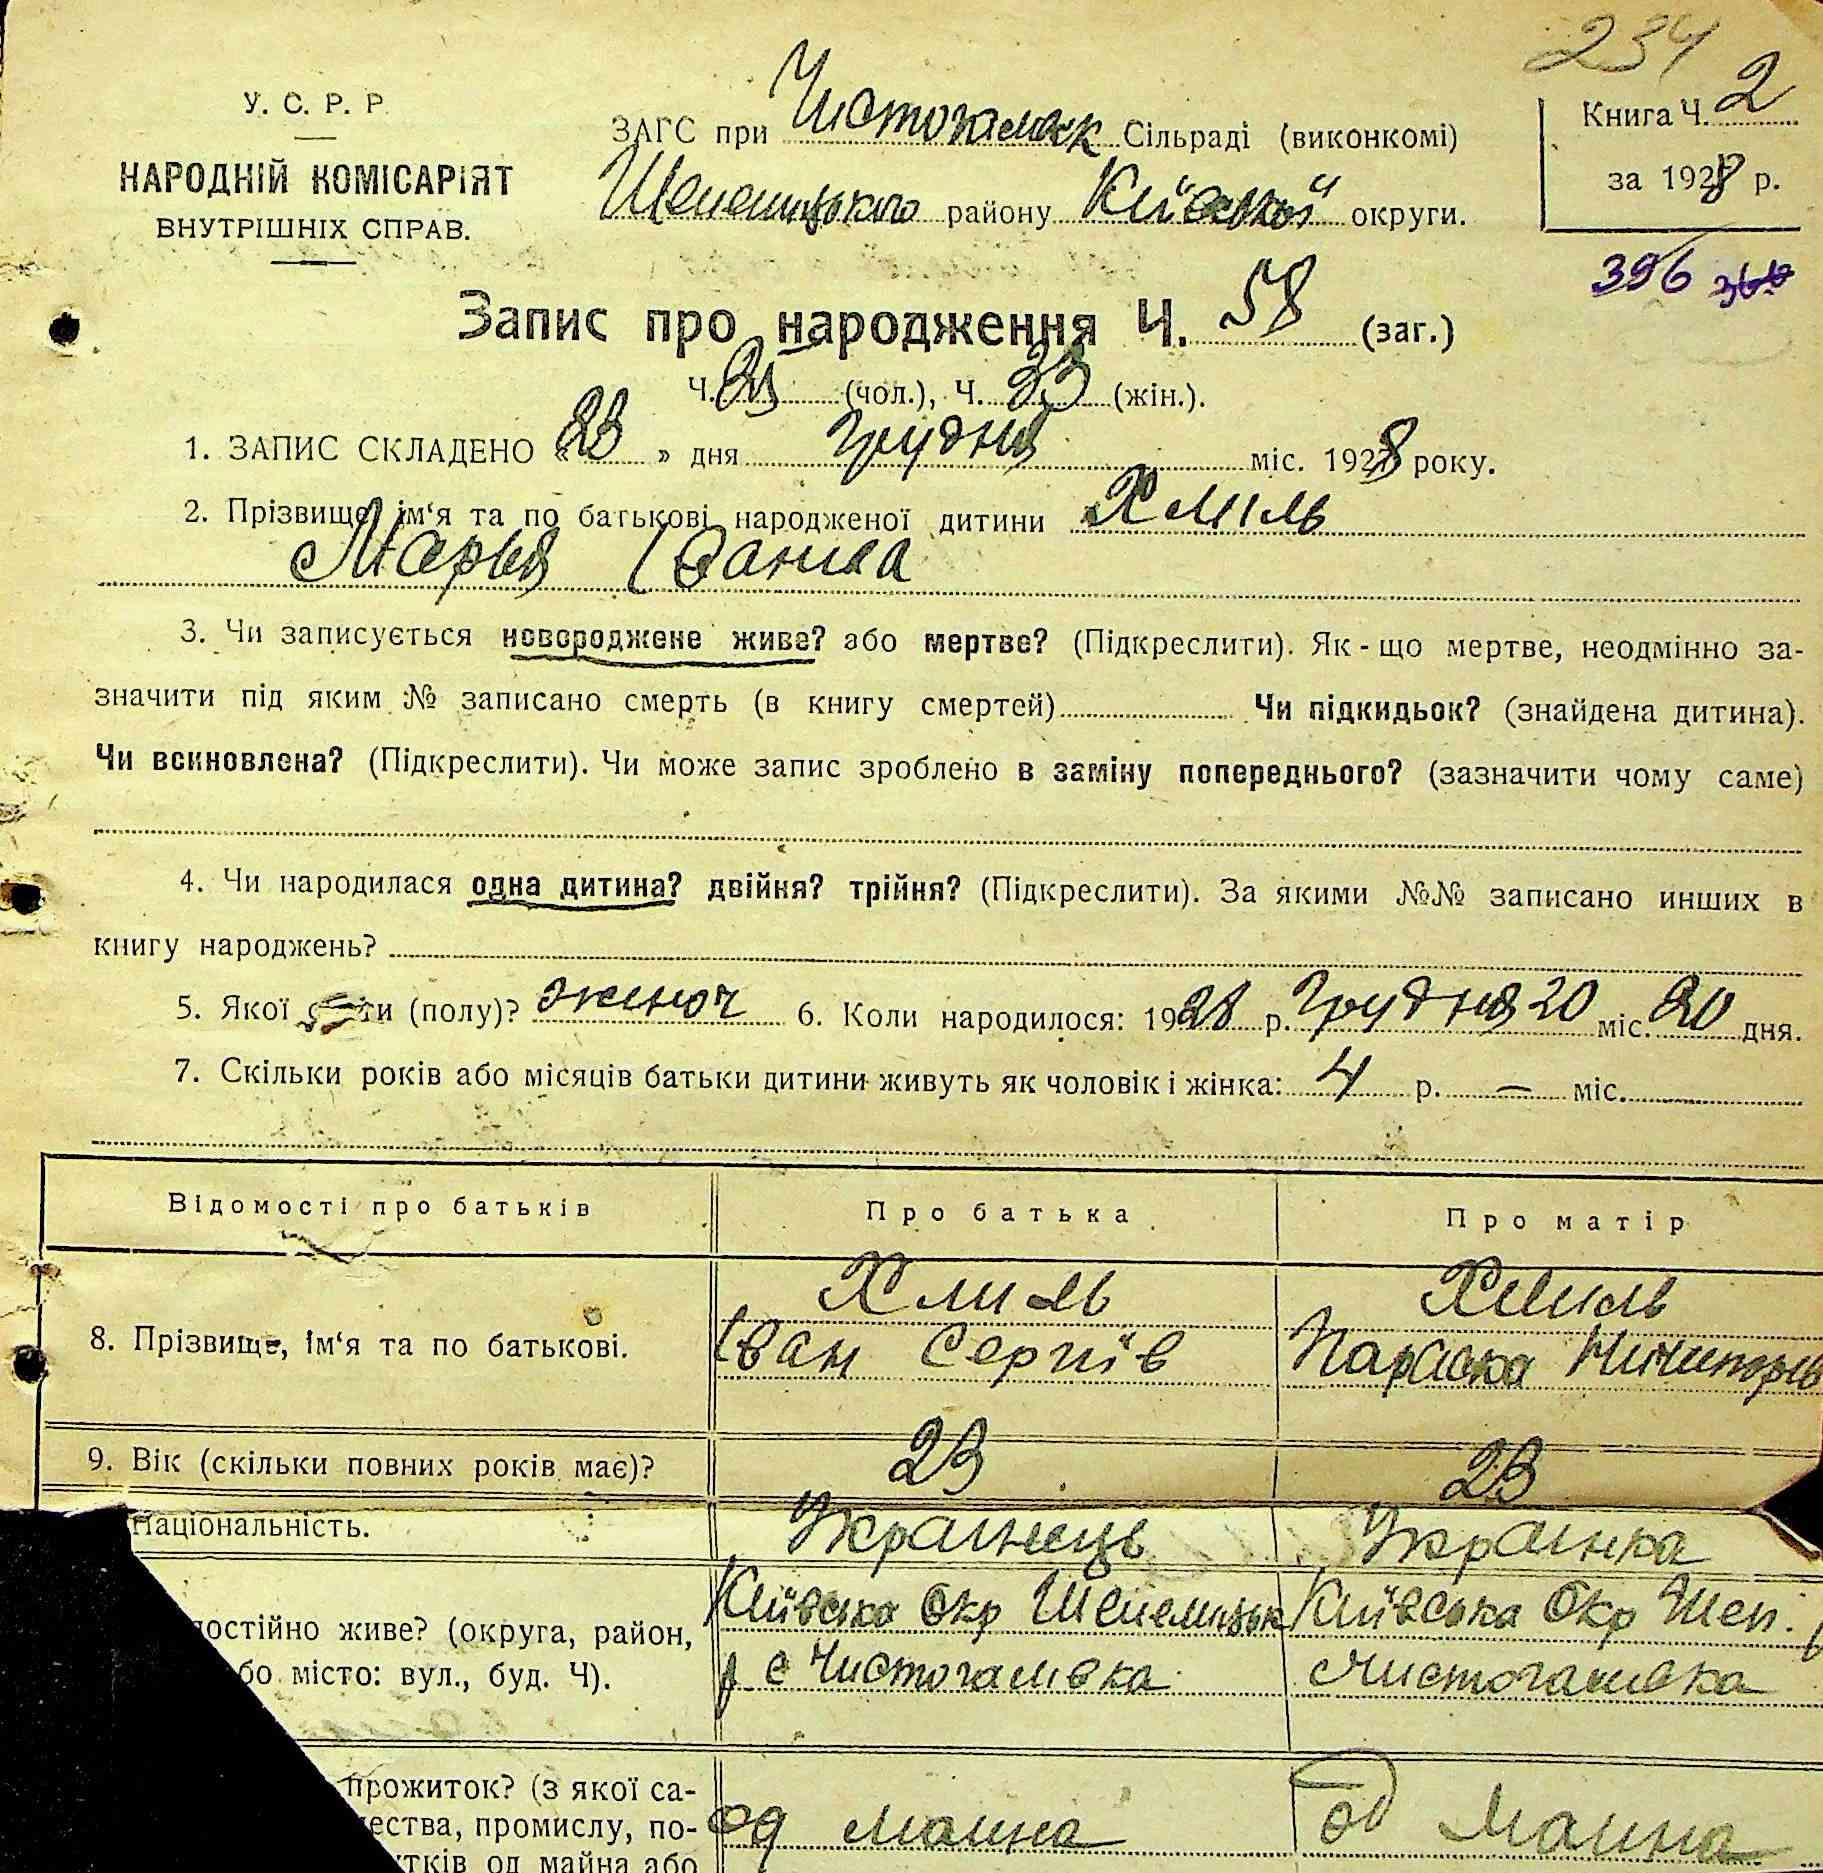 234
У. С. Р. Р.
НАРОДНІЙ КОМІСАРІЯТ
ВНУТРІШНІХ СПРАВ.
ЗАГС при Чистогалівск Сільраді (виконкомі)
Шепелицького району Київської округи.
Книга Ч. 2
за 1928 р.
396
Запис про народження Ч. 58 (заг.)
Ч. 25 (чол.), Ч. 33 (жін.).
1. ЗАПИС СКЛАДЕНО « 23 » дня Грудня міс. 1928 року.
2. Прізвище, ім'я та по батькові народженої дитини Хміль
Марья Івание
3. Чи записується новороджене живе? або мертве? (Підкреслити). Як-що мертве, неодмінно за-
значити під яким № записано смерть (в книгу смертей) Чи підкидьок? (знайдена дитина).
Чи всиновлена? (Підкреслити). Чи може запис зроблено в заміну попереднього? (зазначити чому саме)
4. Чи народилася одна дитина? двійня? трійня? (Підкреслити). За якими №№ записано инших в
книгу народжень?
5. Якої (полу)? жіноч 6. Коли народилося: 1928 р. Грудня 20 міс. 20 дня.
7. Скільки років або місяців батьки дитини живуть як чоловік і жінка: 4 р. — міс.
Відомості про батьків Про батька Про матір
Хмиль Хмиль
8. Прізвище, ім'я та по батькові. Іван Сергіїв Параска
9. Вік (скільки повних років має)? 23 23
Національність. Українець Українка
Київська Окр Шепелицьк Київська Окр Шеп. р
постійно живе? (округа, район,
бо місто: вул., буд. Ч). р с Чистогалівка Чистогалівка
прожиток? (з якої са-
ества, промислу, по- од маина од маина
тків од майна або